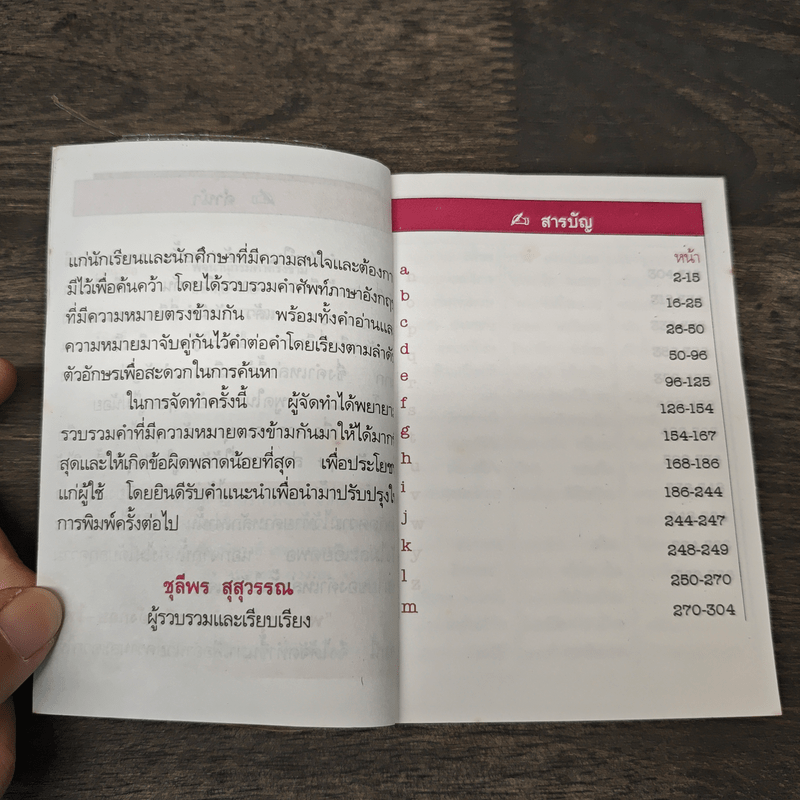 แก่นักเรียนและนักศึกษาที่มีความสนใจและต้องกา
มีไว้เพื่อค้นคว้า โดยได้รวบรวมคำศัพท์ภาษาอังกฤ
ที่มีความหมายตรงข้ามกัน พร้อมทั้งคำอ่านแล
ความหมายมาจับคู่กันไว้คำต่อคำโดยเรียงตามลำดั
ตัวอักษรเพื่อสะดวกในการค้นหา
ในการจัดทำครั้งนี้ ผู้จัดทำได้พยายา
รวบรวมคำที่มีความหมายตรงข้ามกันมาให้ได้มาก
สุดและให้เกิดข้อผิดพลาดน้อยที่สุด เพื่อประโยช
แก่ผู้ใช้ โดยยินดีรับคำแนะนำเพื่อนำมาปรับปรุงใ
การพิมพ์ครั้งต่อไป
ชุลีพร สุสุวรรณ
ผู้รวบรวมและเรียบเรียง
สารบัญ
หน้า
a 2-15
b 16-25
c 26-50
d 50-96
e 96-125
f 126-154
g 154-167
h 168-186
i 186-244
j 244-247
k 248-249
l 250-270
m 270-304